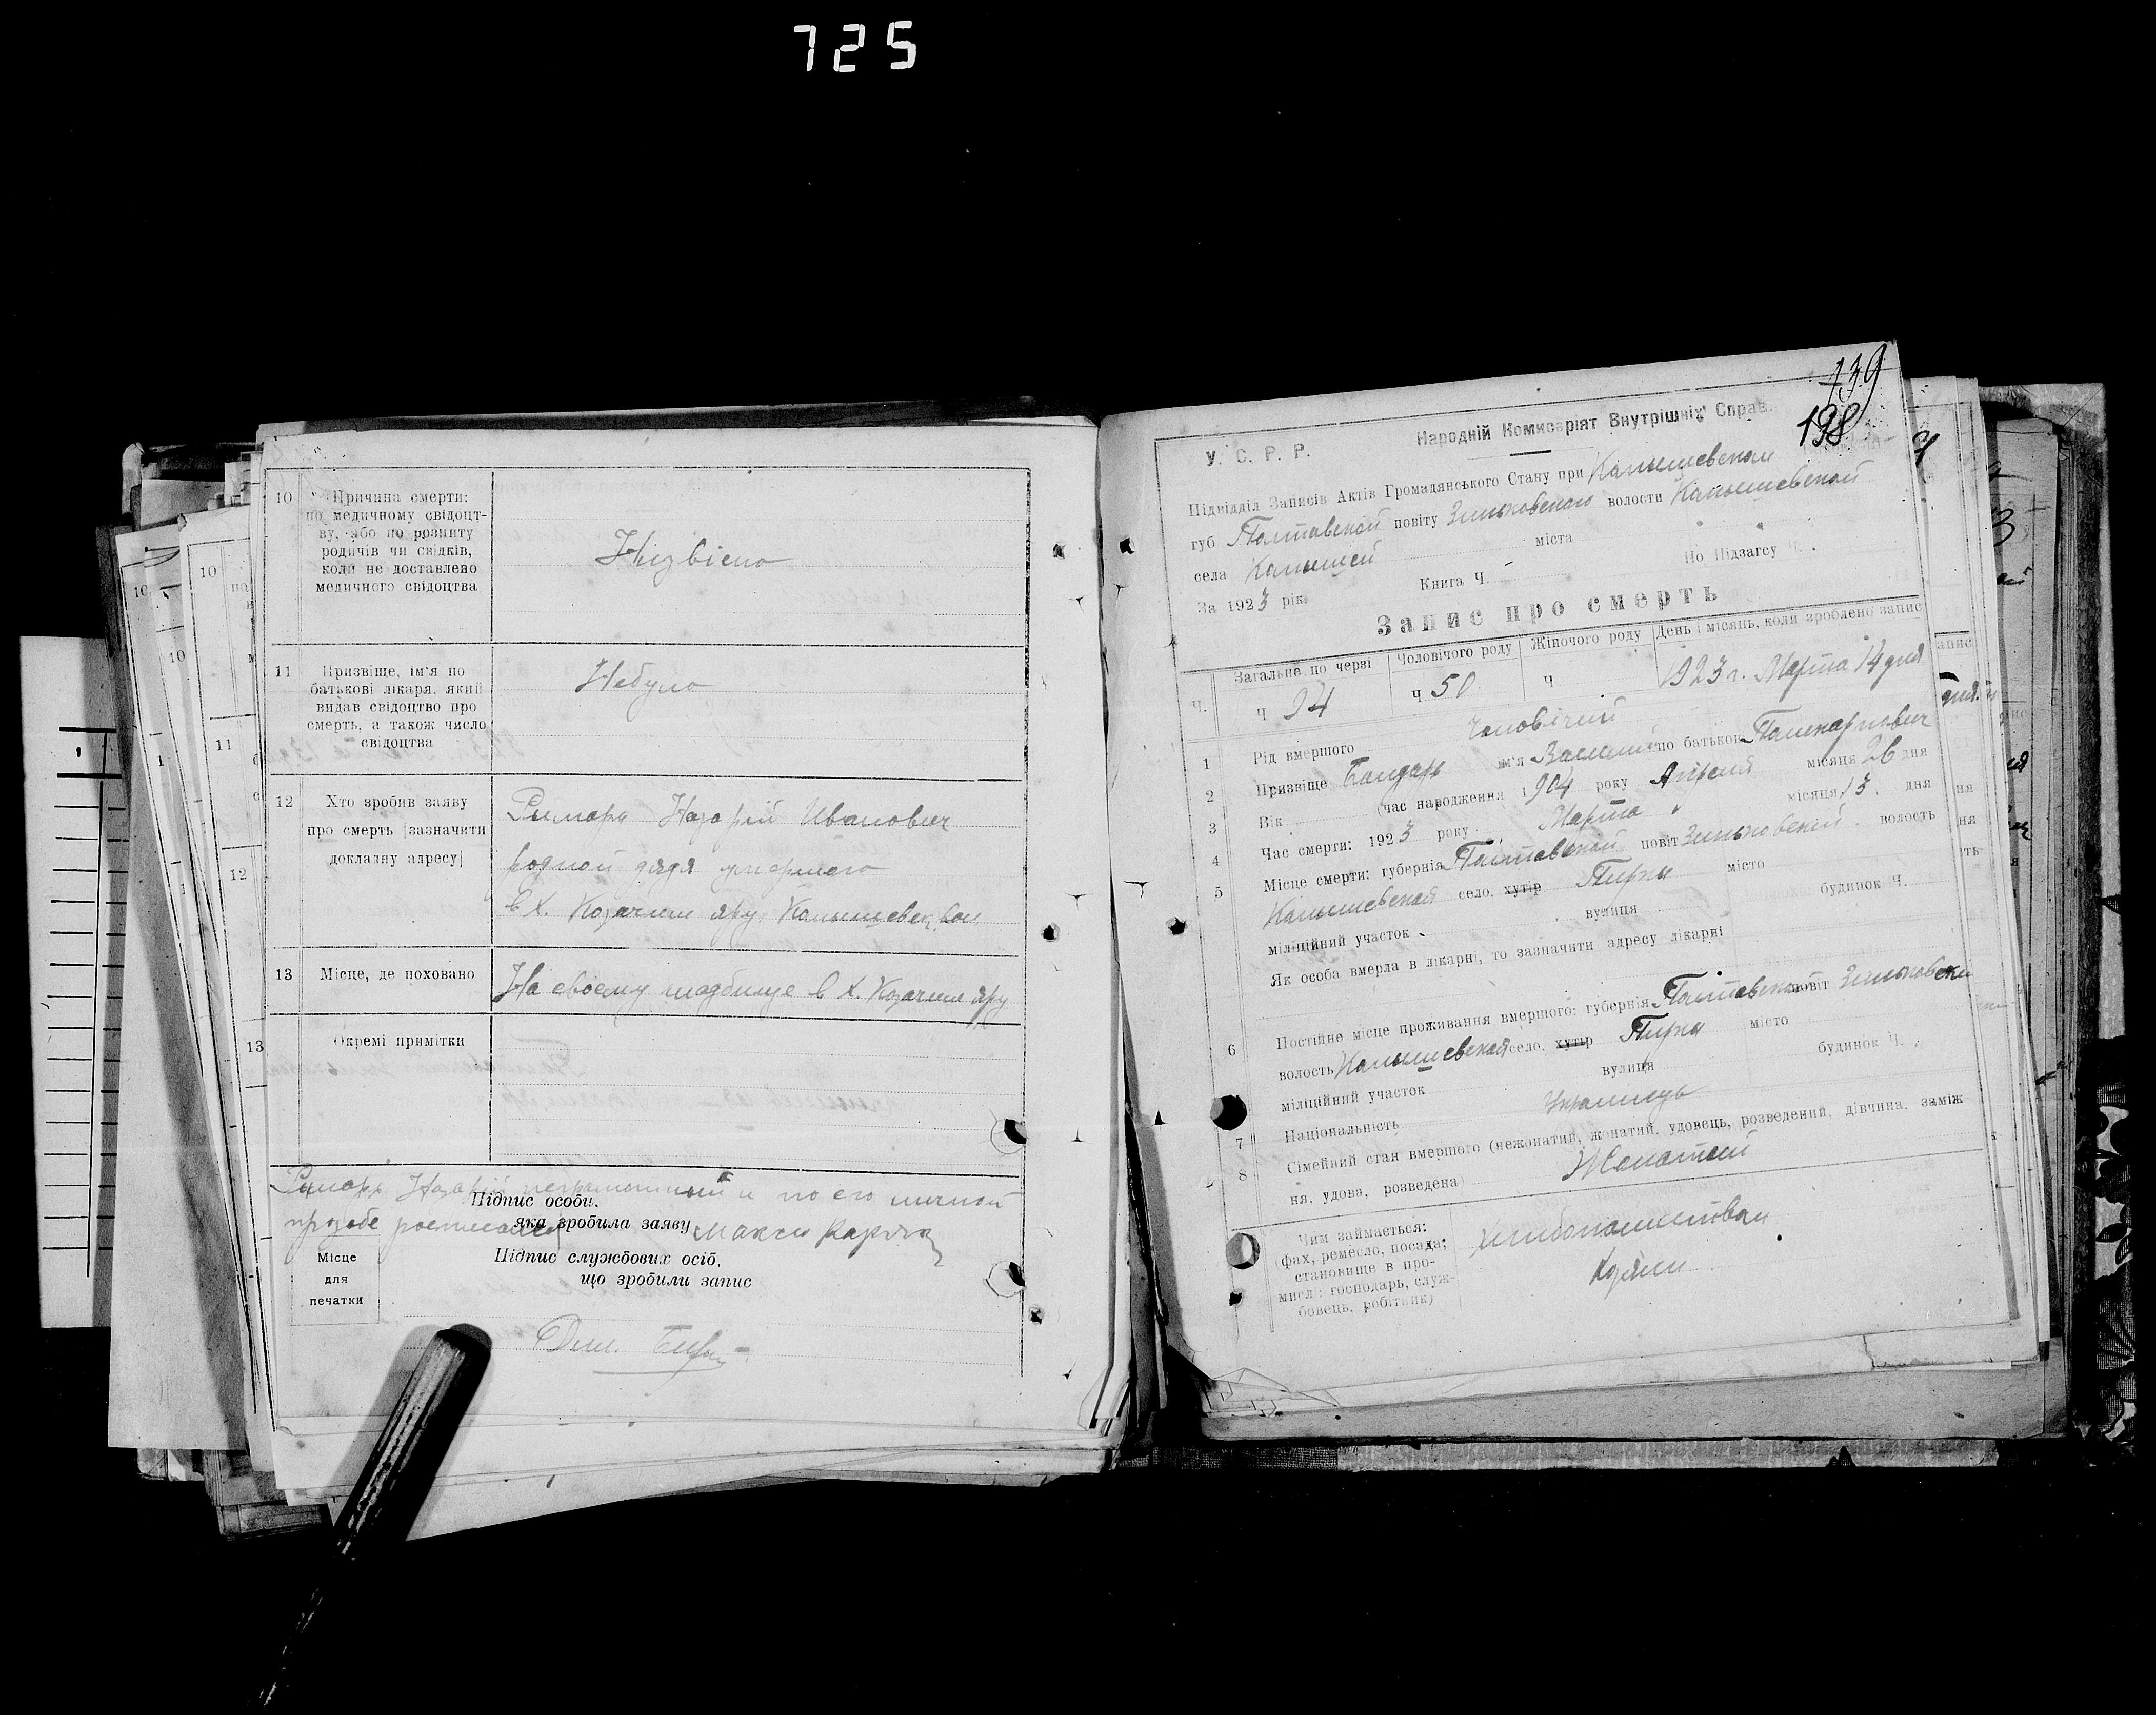 725
10 Причина смерти:
по медичному свідоцт-
ву, або по розпиту
родичів чи свідків,
коли не доставлено
медичного свідоцтва
Нізвісно
11 Призвіще, ім'я по
батькові лікаря, який
видав свідоцтво про
смерть, а також число
свідоцтва
Небуло
12 Хто зробив заяву
про смерть [зазначити
докладну адресу]
Римарь Назарій Иванович
родной дядя умершого
в Х. Козачем яру Камышевск, вол
13 Місце, де поховано
На своему кладбище в Х. Козачем яру
Окремі примітки
Римарь Назарій неграмотный и по его личной
Підпис особи,
прозбе росписался
яка зробила заяву
Місце
для
печатки
Підпис службових осіб,
що зробили запис
139
198
У. С. Р. Р.
Народній Комисаріят Внутрішніх Справ.
Підвідділ Записів Актів Громадянського Стану при Камышевском
губ Полтавской повіту Зиньковского волости Камышевской
села Камышей міста
За 1923 рік Книга Ч. По Підзагсу Ч.
Запис про смерть
Ч. Загальне по черзі Чоловічого роду Жіночого роду День і місяць, коли зроблено запис
ч 94 ч 50 ч 1923 г. Марта 14 дня
1 Рід вмершого Чоловічий
2 Призвіще Бондарь ім'я Василий по батькові Поликарпович
3 Вік (час народження 1904 року Апреля місяця 26 дня
4 Час смерти: 1923 року Марта місяця 13 дня
5 Місце смерти: губернія Полтавской повіт Зиньковский волость
Камышевской село, хутір Пирки місто
міліційний участок вулиця будинок Ч.
Як особа вмерла в лікарні, то зазначити адресу лікарні
6 Постійне місце проживання вмершого: губернія Полтавской повіт Зиньковски
волость Камышевской село, хутір Пирки місто
міліційний участок вулиця будинок Ч.
7 Національність Украинець
8 Сімейний стан вмершого (нежонатий, жонатий, удовець, розведений, дівчина, заміж-
ня, удова, розведена) Жонатый
Чим займається:
(фах, ремесло, посада;
становище в про-
мислі: господарь, служ-
бовець, робітник)